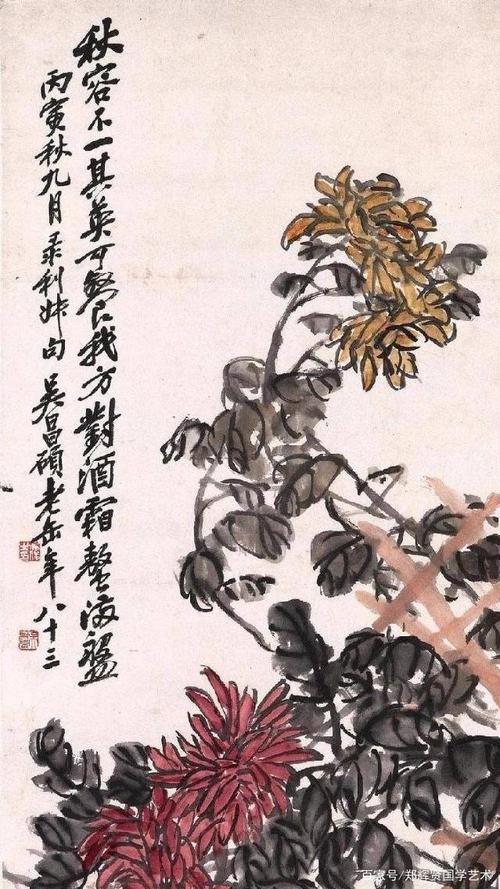 秋容不一其英可餐我方對酒霜螯滿盤
丙寅秋九月 句 吳昌碩老缶年八十三
百家号/郑辉贤国学艺术